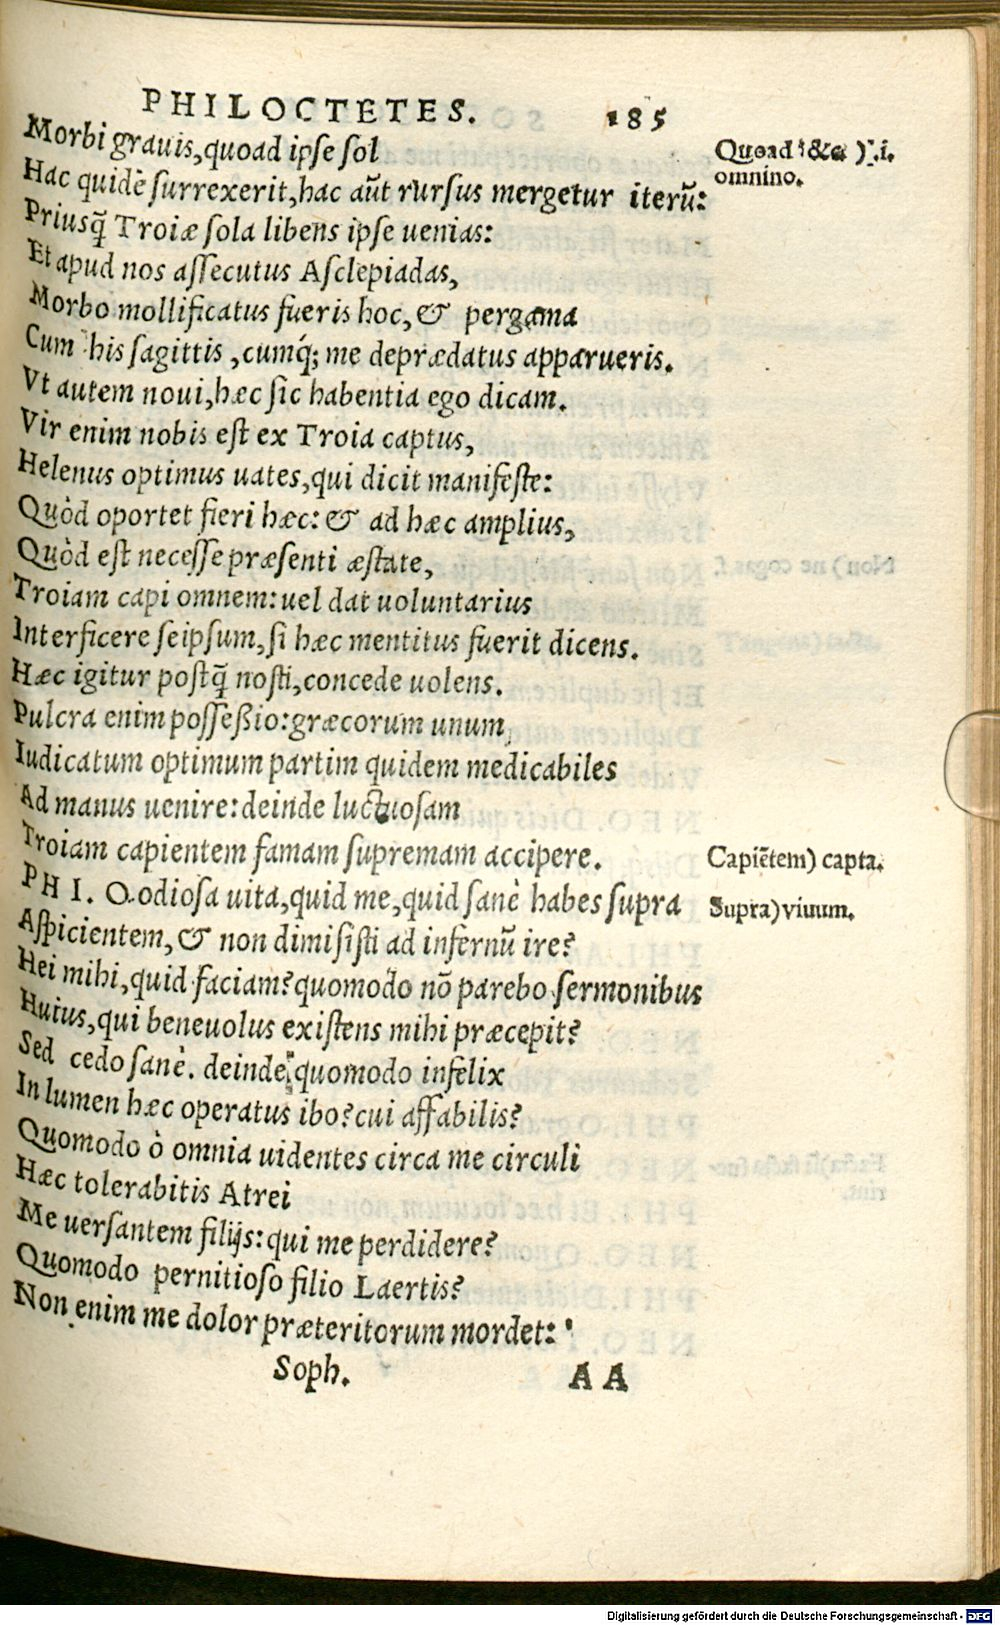 PHILOCTETES. 185
Morbi grauis, quoad ipse sol
Hac quidē surrexerit, hac aūt rursus mergetur iterū:
Priusq̄ Troiæ sola libens ipse uenias:
Et apud nos assecutus Asclepiadas,
Morbo mollificatus fueris hoc, & pergama
Cum his sagittis, cumq́; me deprædatus apparueris.
Vt autem noui, hæc sic habentia ego dicam.
Vir enim nobis est ex Troia captus,
Helenus optimus uates, qui dicit manifeste:
Quòd oportet fieri hæc: & ad hæc amplius,
Quòd est necesse præsenti æstate,
Troiam capi omnem: uel dat uoluntarius
Interficere seipsum, si hæc mentitus fuerit dicens.
Hæc igitur postq̄ nosti, concede uolens.
Pulcra enim possessio: græcorum unum
Iudicatum optimum partim quidem medicabiles
Ad manus uenire: deinde luctuosam
Troiam capientem famam supremam accipere.
PHI. O odiosa uita, quid me, quid sanè habes supra
Aspicientem, & non dimisisti ad infernū ire?
Hei mihi, quid faciam? quomodo nō parebo sermonibus
Huius, qui beneuolus existens mihi præcepit?
Sed cedo sanè. deinde quomodo infelix
In lumen hæc operatus ibo? cui affabilis?
Quomodo ò omnia uidentes circa me circuli
Hæc tolerabitis Atrei
Me uersantem filijs: qui me perdidere?
Quomodo pernitioso filio Laertis?
Non enim me dolor præteritorum mordet:
Soph. AA
Quoad &c. ).i.
omnino.
Capiētem) capta.
Supra) viuum.
Digitalisierung gefördert durch die Deutsche Forschungsgemeinschaft - DFG